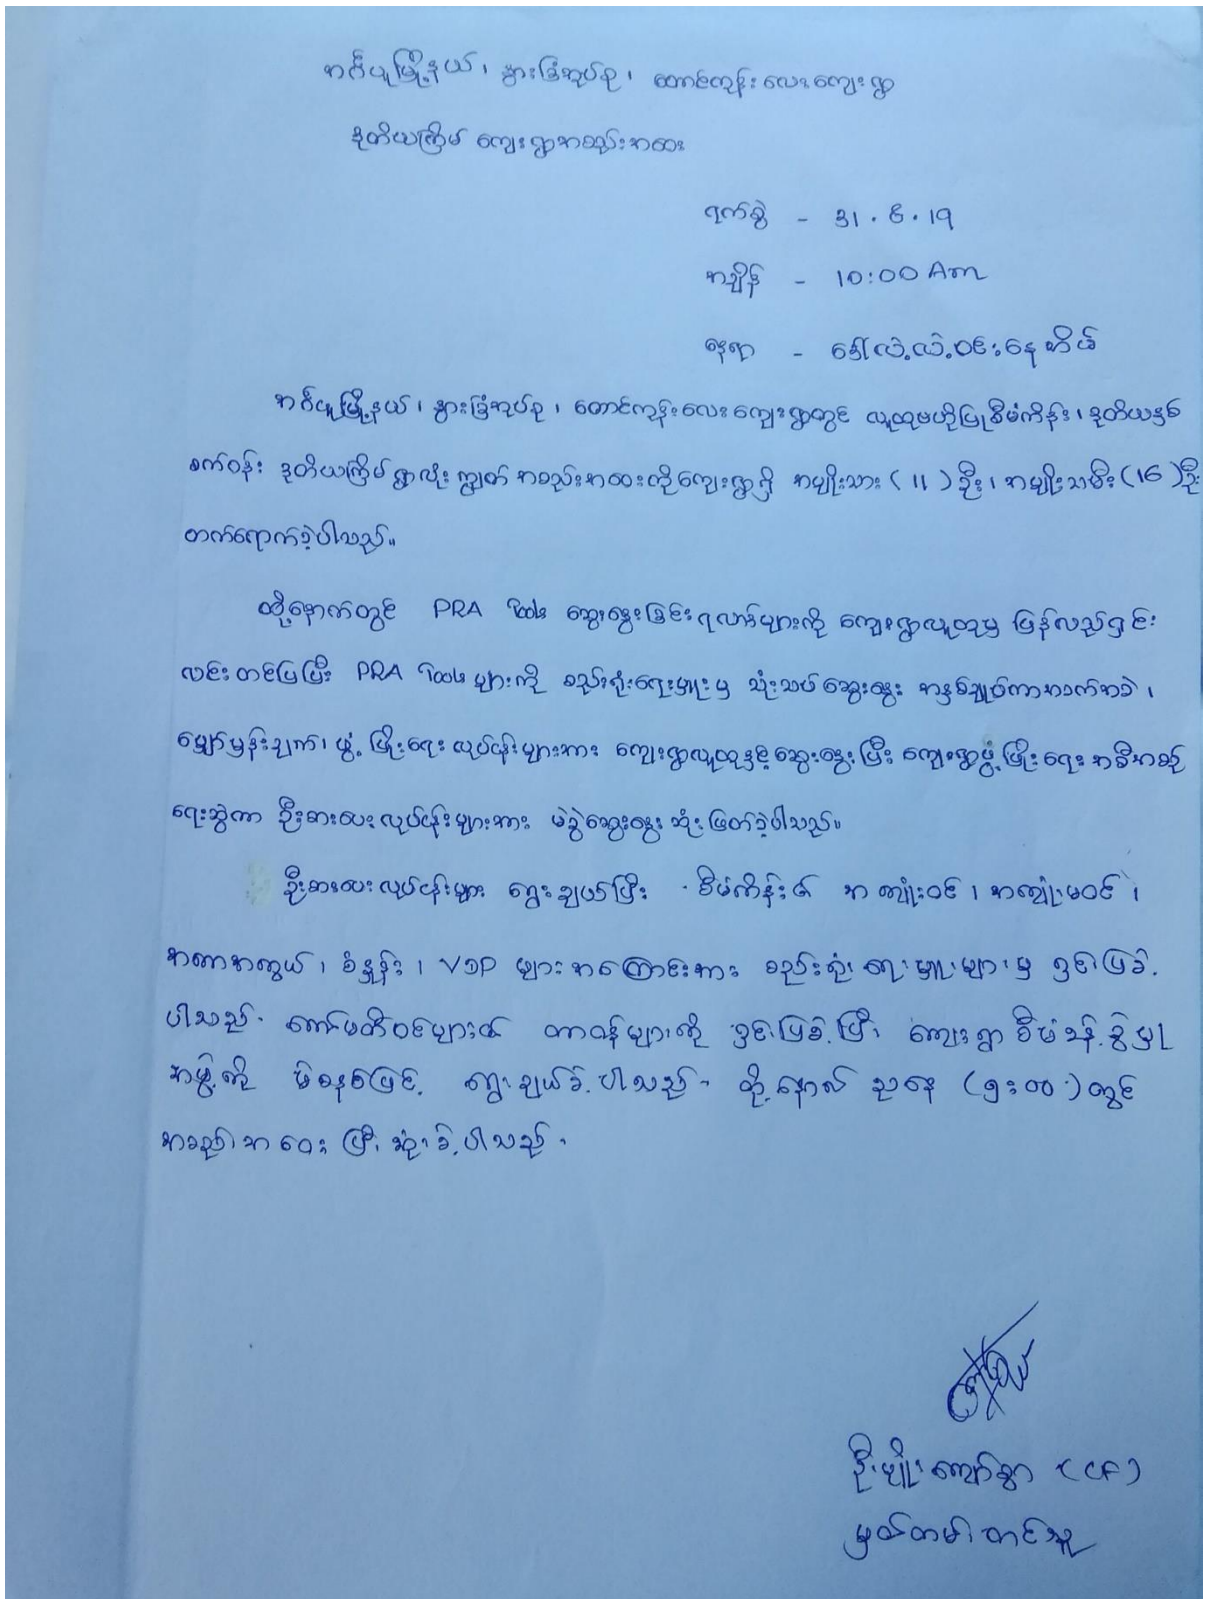 အင်္ဂပူမြို့နယ်၊ နွားခြံအုပ်စု၊ တောင်ကုန်းလေးကျေးရွာ
ဒုတိယကြိမ် ကျေးရွာအစည်းအဝေး
ရက်စွဲ - 31.8.19
အချိန် - 10:00 Am
နေရာ - ဒေါ်လဲ့လဲ့ဝင်းနေအိမ်
အင်္ဂပူမြို့နယ်၊ နွားခြံအုပ်စု၊ တောင်ကုန်းလေးကျေးရွာတွင် လူထုဗဟိုပြုစီမံကိန်း၊ ဒုတိယနှစ်
စက်ဝန်း ဒုတိယကြိမ်ရွာလုံးကျွတ် အစည်းအဝေးကိုကျေးရွာရှိ အမျိုးသား (11) ဦး၊ အမျိုးသမီး (16) ဦး
တက်ရောက်ခဲ့ပါသည်။
ထို့နောက်တွင် PRA Tools ဆွေးနွေးခြင်းရလာဒ်များကို ကျေးရွာလူထုမှ ပြန်လည်ရှင်း
လင်းတင်ပြပြီး PRA Tools များကို စည်းရုံးရေးမှူးမှ သုံးသပ်ဆွေးနွေး အနှစ်ချုပ်ကာအခက်အခဲ၊
မျှော်မှန်းချက်၊ ဖွံ့ဖြိုးရေးလုပ်ငန်းများအား ကျေးရွာလူထုနှင့်ဆွေးနွေးပြီး ကျေးရွာဖွံ့ဖြိုးရေးအစီအစဉ်
ရေးဆွဲကာ ဦးစားပေးလုပ်ငန်းများအား မဲခွဲဆွေးနွေးဆုံးဖြတ်ခဲ့ပါသည်။
ဦးစားပေးလုပ်ငန်းများ ရွေးချယ်ပြီး စီမံကိန်း၏ အကျုံးဝင်၊ အကျုံးမဝင်၊
အကာအကွယ်၊ စံနှုန်း၊ VDP များအကြောင်းအား စည်းရုံးရေးမှူးများမှ ရှင်းပြခဲ့
ပါသည်။ ကော်မတီဝင်များ၏ တာဝန်များကို ရှင်းပြခဲ့ပြီး ကျေးရွာစီမံခန့်ခွဲမှု
အဖွဲ့ကို မဲစနစ်ဖြင့် ရွေးချယ်ခဲ့ပါသည်။ ထို့နောက် ညနေ (၅:၀၀) တွင်
အစည်းအဝေး ပြီးဆုံးခဲ့ပါသည်။
ဦးမျိုးကျော်စွာ (CF)
မှတ်တမ်းတင်သူ